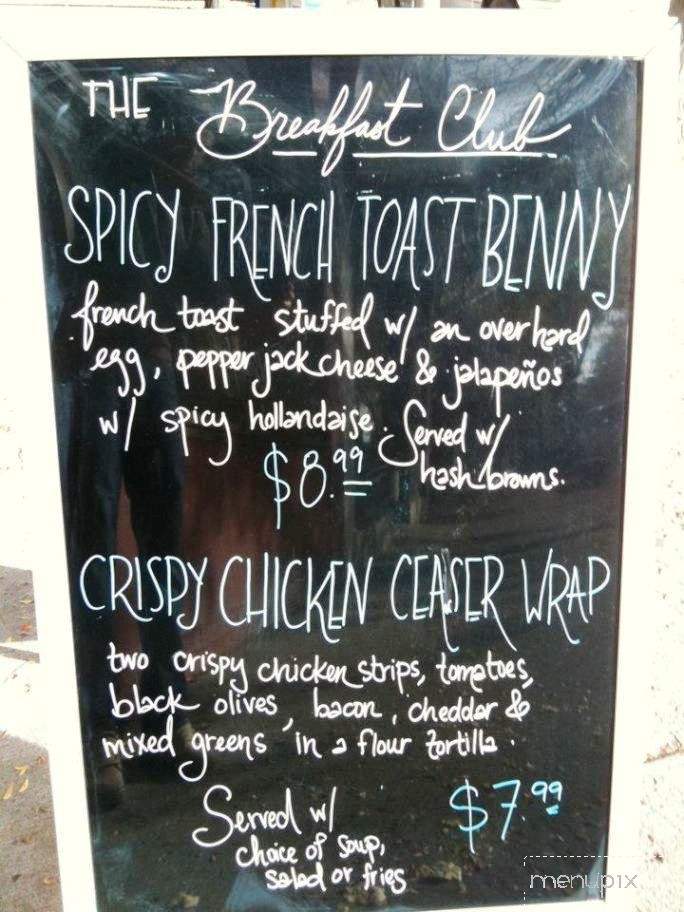 THE Breakfast Club
SPICY FRENCH TOAST BENNY
french toast stuffed w/ an over hard
egg, pepper jack cheese & jalapeños
w/ spicy hollandaise. Served w/
hash browns.
$8.99
CRISPY CHICKEN CEASER WRAP
two crispy chicken strips, tomatoes,
black olives, bacon, cheddar &
mixed greens in a flour tortilla.
Served w/
choice of soup,
salad or fries
$7.99
menupix